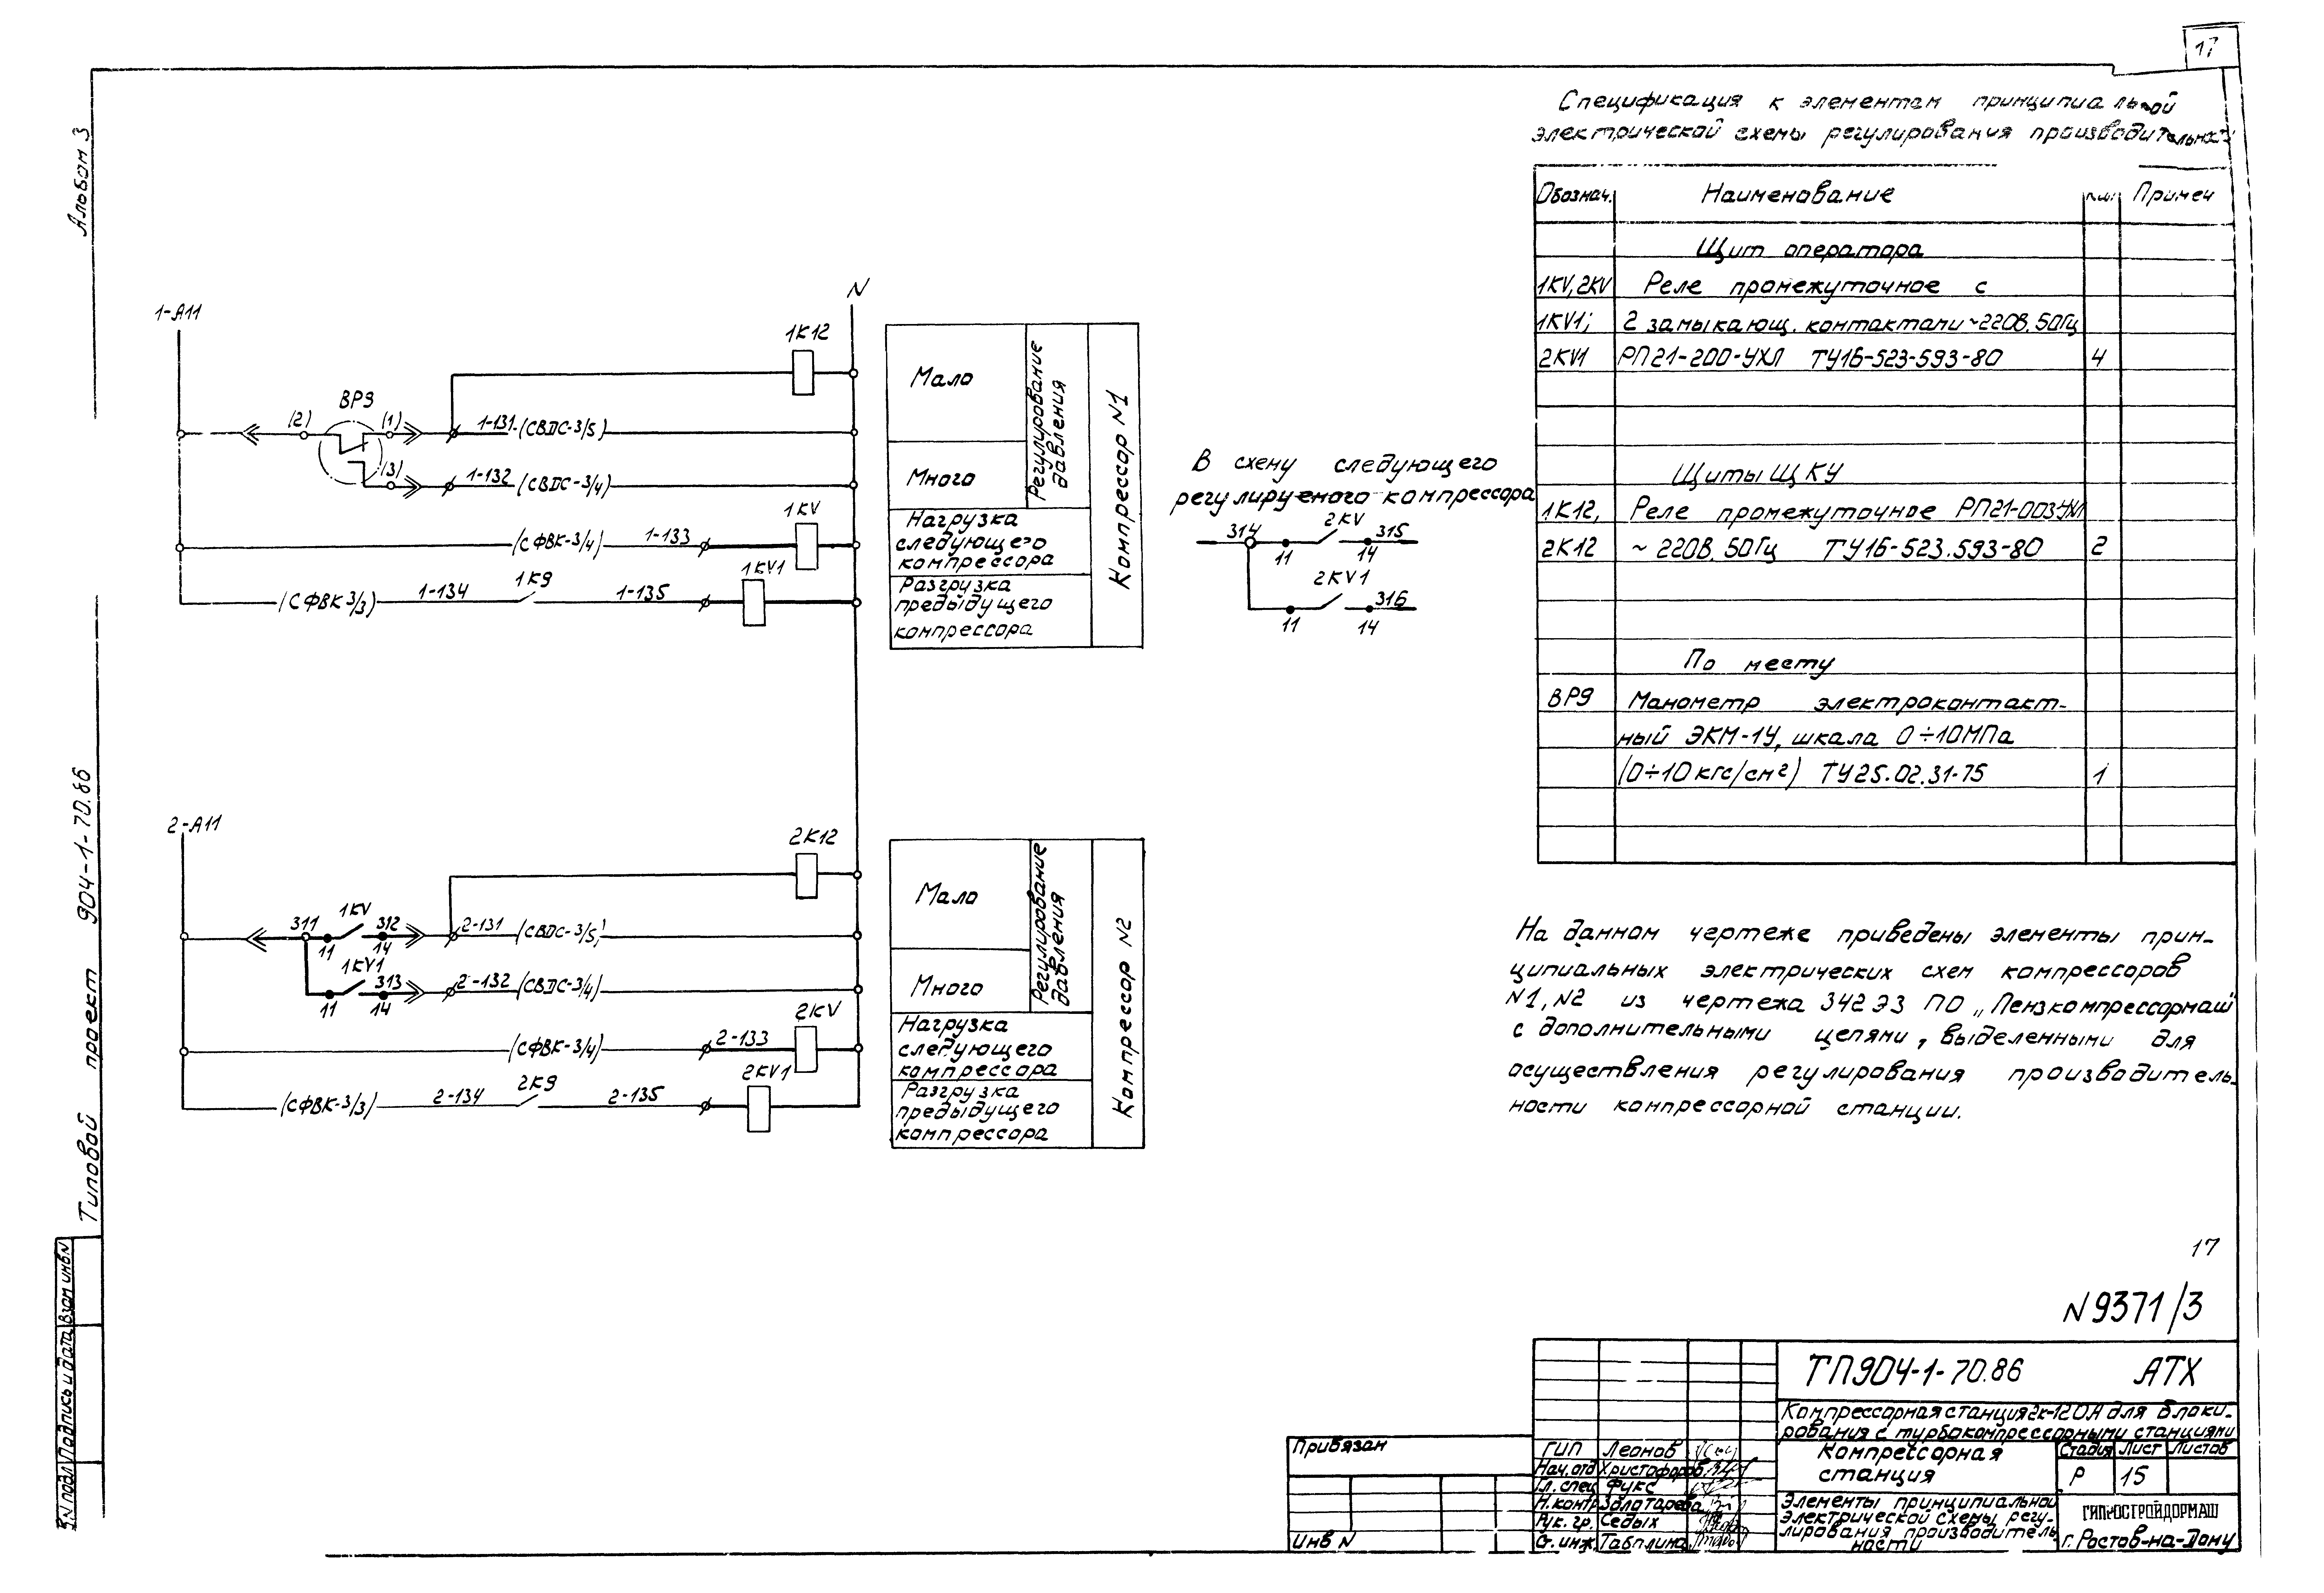 17
Альбом 3
Типовой проект 904-1-70.86
Взам инв N
Подпись и дата
N подл
Спецификация к элементам принципиальной
электрической схемы регулирования производительности
Обознач. Наименование Кол. Примеч
Щит оператора
1KV, 2KV Реле промежуточное с
1KV1; 2 замыкающ. контактами ~220В, 50Гц
2KV1 РП21-200-УХЛ ТУ16-523-593-80 4
Щиты ЩКУ
1К12, Реле промежуточное РП21-003УХЛ
2К12 ~ 220В, 50Гц ТУ16-523.593-80 2
По месту
ВР9 Манометр электроконтакт-
ный ЭКМ-1У, шкала 0÷10МПа
(0÷10 кгс/см²) ТУ25.02.31-75 1
N
1-А11
1К12
ВР9
(2) (1)
1-131 (СВДС-3/5)
(3)
1-132 (СВДС-3/4)
1KV
(СФВК-3/4) 1-133
1KV1
(СФВК 3/3) 1-134 1К9 1-135
Мало
Много
Регулирование
давления
Нагрузка
следующего
компрессора
Разгрузка
предыдущего
компрессора
Компрессор N1
В схему следующего
регулируемого компрессора
314 2KV 315
11 14
2KV1
316
11 14
2-А11
2К12
311 1KV 312
11 14
2-131 (СВДС-3/5)
1KV1 313
11 14
2-132 (СВДС-3/4)
2KV
(СФВК-3/4) 2-133
2KV1
(СФВК-3/3) 2-134 2К9 2-135
Мало
Много
Регулирование
давления
Нагрузка
следующего
компрессора
Разгрузка
предыдущего
компрессора
Компрессор N2
На данном чертеже приведены элементы прин-
ципиальных электрических схем компрессоров
N1, N2 из чертежа 342 ЭЗ ПО „Пензкомпрессормаш"
с дополнительными цепями, выделенными для
осуществления регулирования производитель-
ности компрессорной станции.
17
N9371/3
ТП904-1-70.86 АТХ
Компрессорная станция 2к-120А для блоки-
рования с турбокомпрессорными станциями
Компрессорная
станция
Стадия Лист Листов
Р 15
Элементы принципиальной
электрической схемы регу-
лирования производитель
ности
ГИПРОСТРОЙДОРМАШ
г. Ростов-на-Дону
Привязан
Инв N
ГИП Леонов
Нач.отд Христофоров
Гл.спец Фукс
Н.контр Золотарева
Рук. гр. Седых
Ст. инж. Таплина